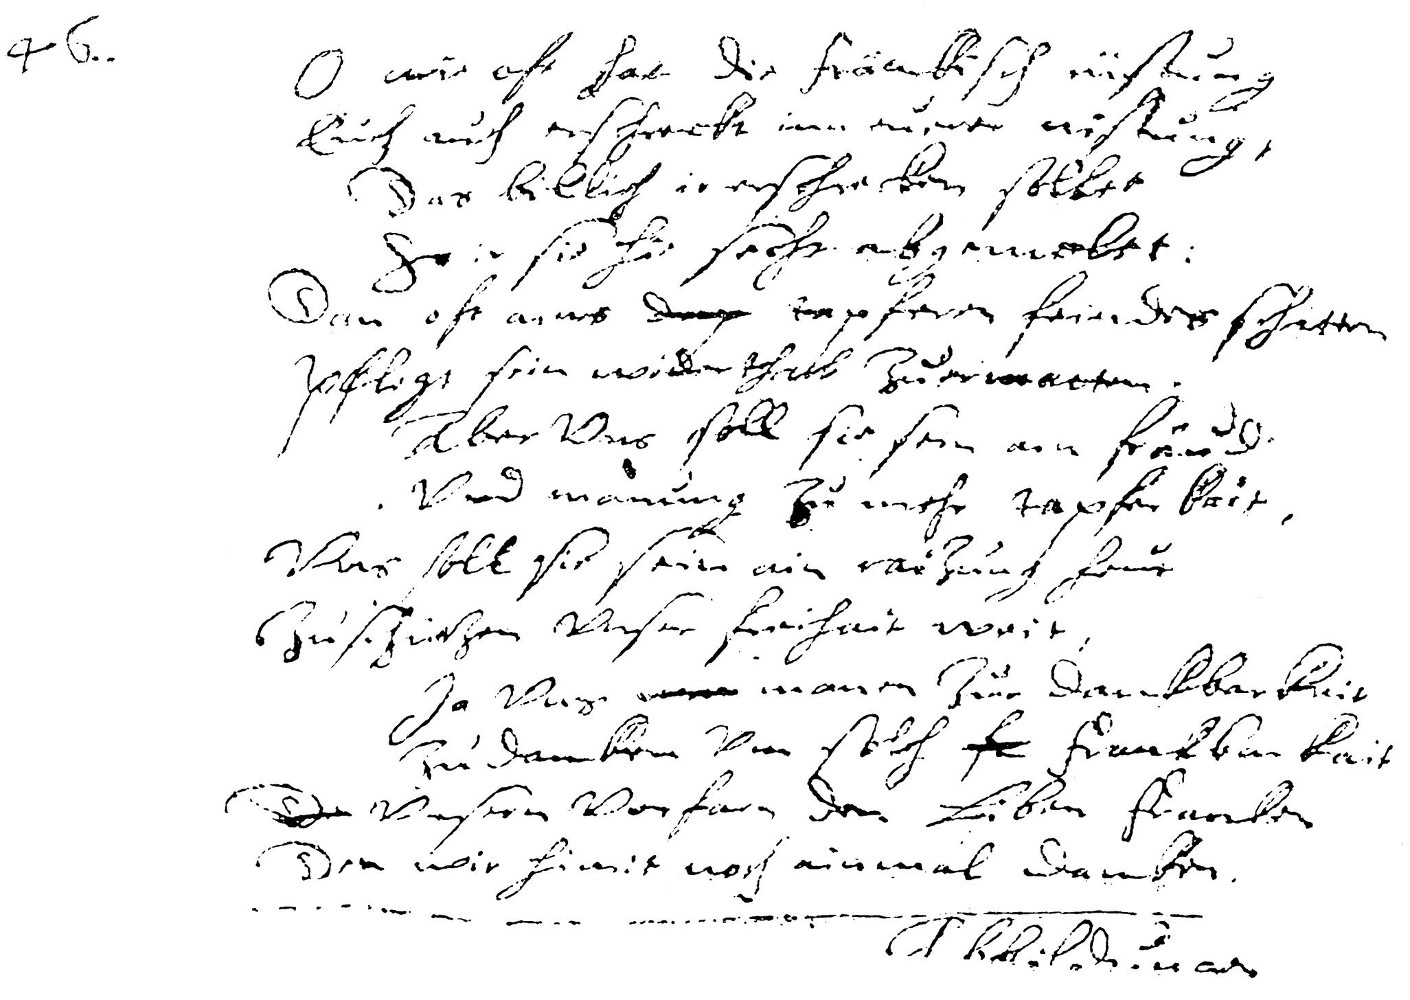 46.
O wie oft hat die fränkisch rüstung
Euch auch erschreckt inn euerer nistung,
Das billich ir erschrecken soltet
So ir sie hie secht abgemolet:
Dan oft aines tapferen feindes schatten
pflegt sein widerthail zuerwarten.
Aber Uns soll sie sein ain fräud
Und manung zu mehr tapferkait,
Uns soll sie sein ain raizung heut
Zuschützen Unser freihait weit,
Ja Uns manen zur dankbarkait
Zudanken Um solch Frankbarkait
Unsern Vorfarn den Liben Franken
Den wir himit noch ainmal danken.
Abbildungen